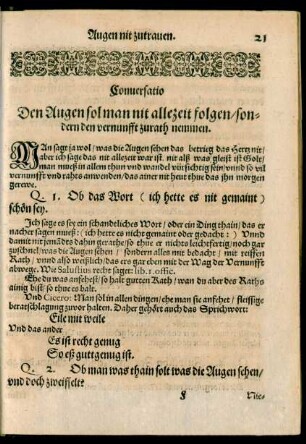 Augen nit zutrauen. 21
Conuersatio
Den Augen sol man nit allezeit folgen/son-
dern den vernunfft zu rath nemmen.
MAn sagt ja wol/was die Augen sehen das betrieg das Hertz nit/
aber ich sage das nit allezeit war ist. nit alß was gleist ist Golt/
Man mueß in allem thun vnd wandel fürsichtig sein/vnnd so vil
vernunfft vnd rahts anwenden/das ainer nit heut thue das ihn morgen
gerewe.
Q. 1. Ob das Wort (ich hette es nit gemaint)
schön sey.
Ich sage es sey ein schandtliches Wort/oder ein Ding thain/das er
nacher sagen mueß: (ich hette es nicht gemaint oder gedacht:) Vnnd
damit nit jemandts dahin gerathe/so thue er nichts leichtfertig/noch gar
zu schnel/was die Augen sehen/sondern alles mit bedacht/mit reiffen
Rath/vnnd also weißlich/das ers zuvor eben mit der Wag der Vernunfft
abwege. Wie Salustius recht saget: lib. 1. offic.
Ehe du was anfehest/so halt gutten Rath/wan du aber des Raths
ainig bist/so thue es balt.
Vnd Cicero: Man sol in allen dingen/ehe man sie anfehet/fleissige
beratschlagung zuvor halten. Daher gehört auch das Sprichwort:
Eile mit weile
Vnd das ander
Es ist recht genüg
So eß gutt genüg ist.
Q. 2. Ob man was thain solt was die Augen sehen/
vnd doch zweiffelt?
F Nie-